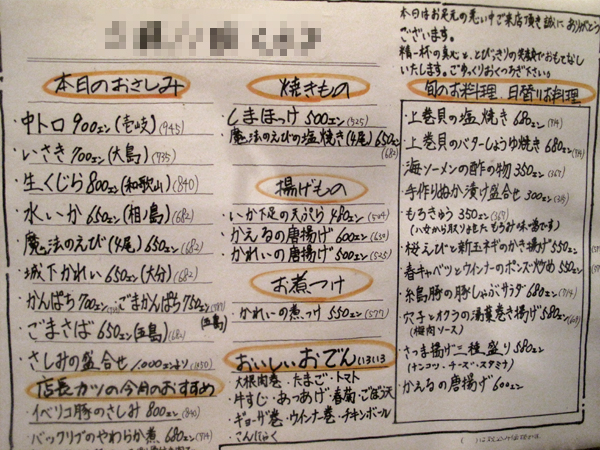 本日はお足元の悪い中ご来店頂き誠にありがとう
ございます。
精一杯の真心と、とびっきりの笑顔でおもてなし
いたします。ごゆっくりおくつろぎ下さい。
本日のおさしみ
中トロ 900エン(壱岐)(945)
いさき 700エン(大島)(735)
生くじら 800エン(和歌山)(840)
水いか 650エン(相ノ島)(682)
魔法のえび(4尾) 650エン(682)
城下かれい 650エン(大分)(682)
かんぱち 700エン ごまかんぱち 750エン
ごまさば 650エン(五島)(682) (五島)
さしみの盛合せ 1,000エンより(1050)
店長カツの今月のおすすめ
イベリコ豚のさしみ 800エン(840)
バックリブのやわらか煮 680エン(714)
焼きもの
しまほっけ 500エン(525)
魔法のえびの塩焼き(4尾) 650エン
(682)
揚げもの
いか下足の天ぷら 480エン(504)
かえるの唐揚げ 600エン(630)
かれいの唐揚げ 500エン(525)
お煮つけ
かれいの煮つけ 550エン(577)
おいしいおでん いろいろ
大根肉巻・たまご・トマト
牛すじ・あつあげ・春菊・ごぼう天
ギョーザ巻・ウインナー巻・チキンボール
・こんにゃく
旬のお料理、日替りお料理
・上巻貝の塩焼き 680エン(714)
・上巻貝のバターしょうゆ焼き 680エン(714)
・海ソーメンの酢の物 350エン(367)
・手作りぬか漬け盛合せ 300エン(315)
・もろきゅう 350エン(367)
(八女から取りよせたもろみ味噌です)
・桜えびと新玉ネギのかき揚げ 550エン
・春キャベツとウインナーのポンズ炒め 550エン
・糸島豚の豚しゃぶサラダ 680エン(714)
・穴子とオクラの湯葉巻き揚げ 580エン
(梅肉ソース)
・さつま揚げ三種盛り 580エン
(ナンコツ・チーズ・スタミナ)
・かえるの唐揚げ 600エン